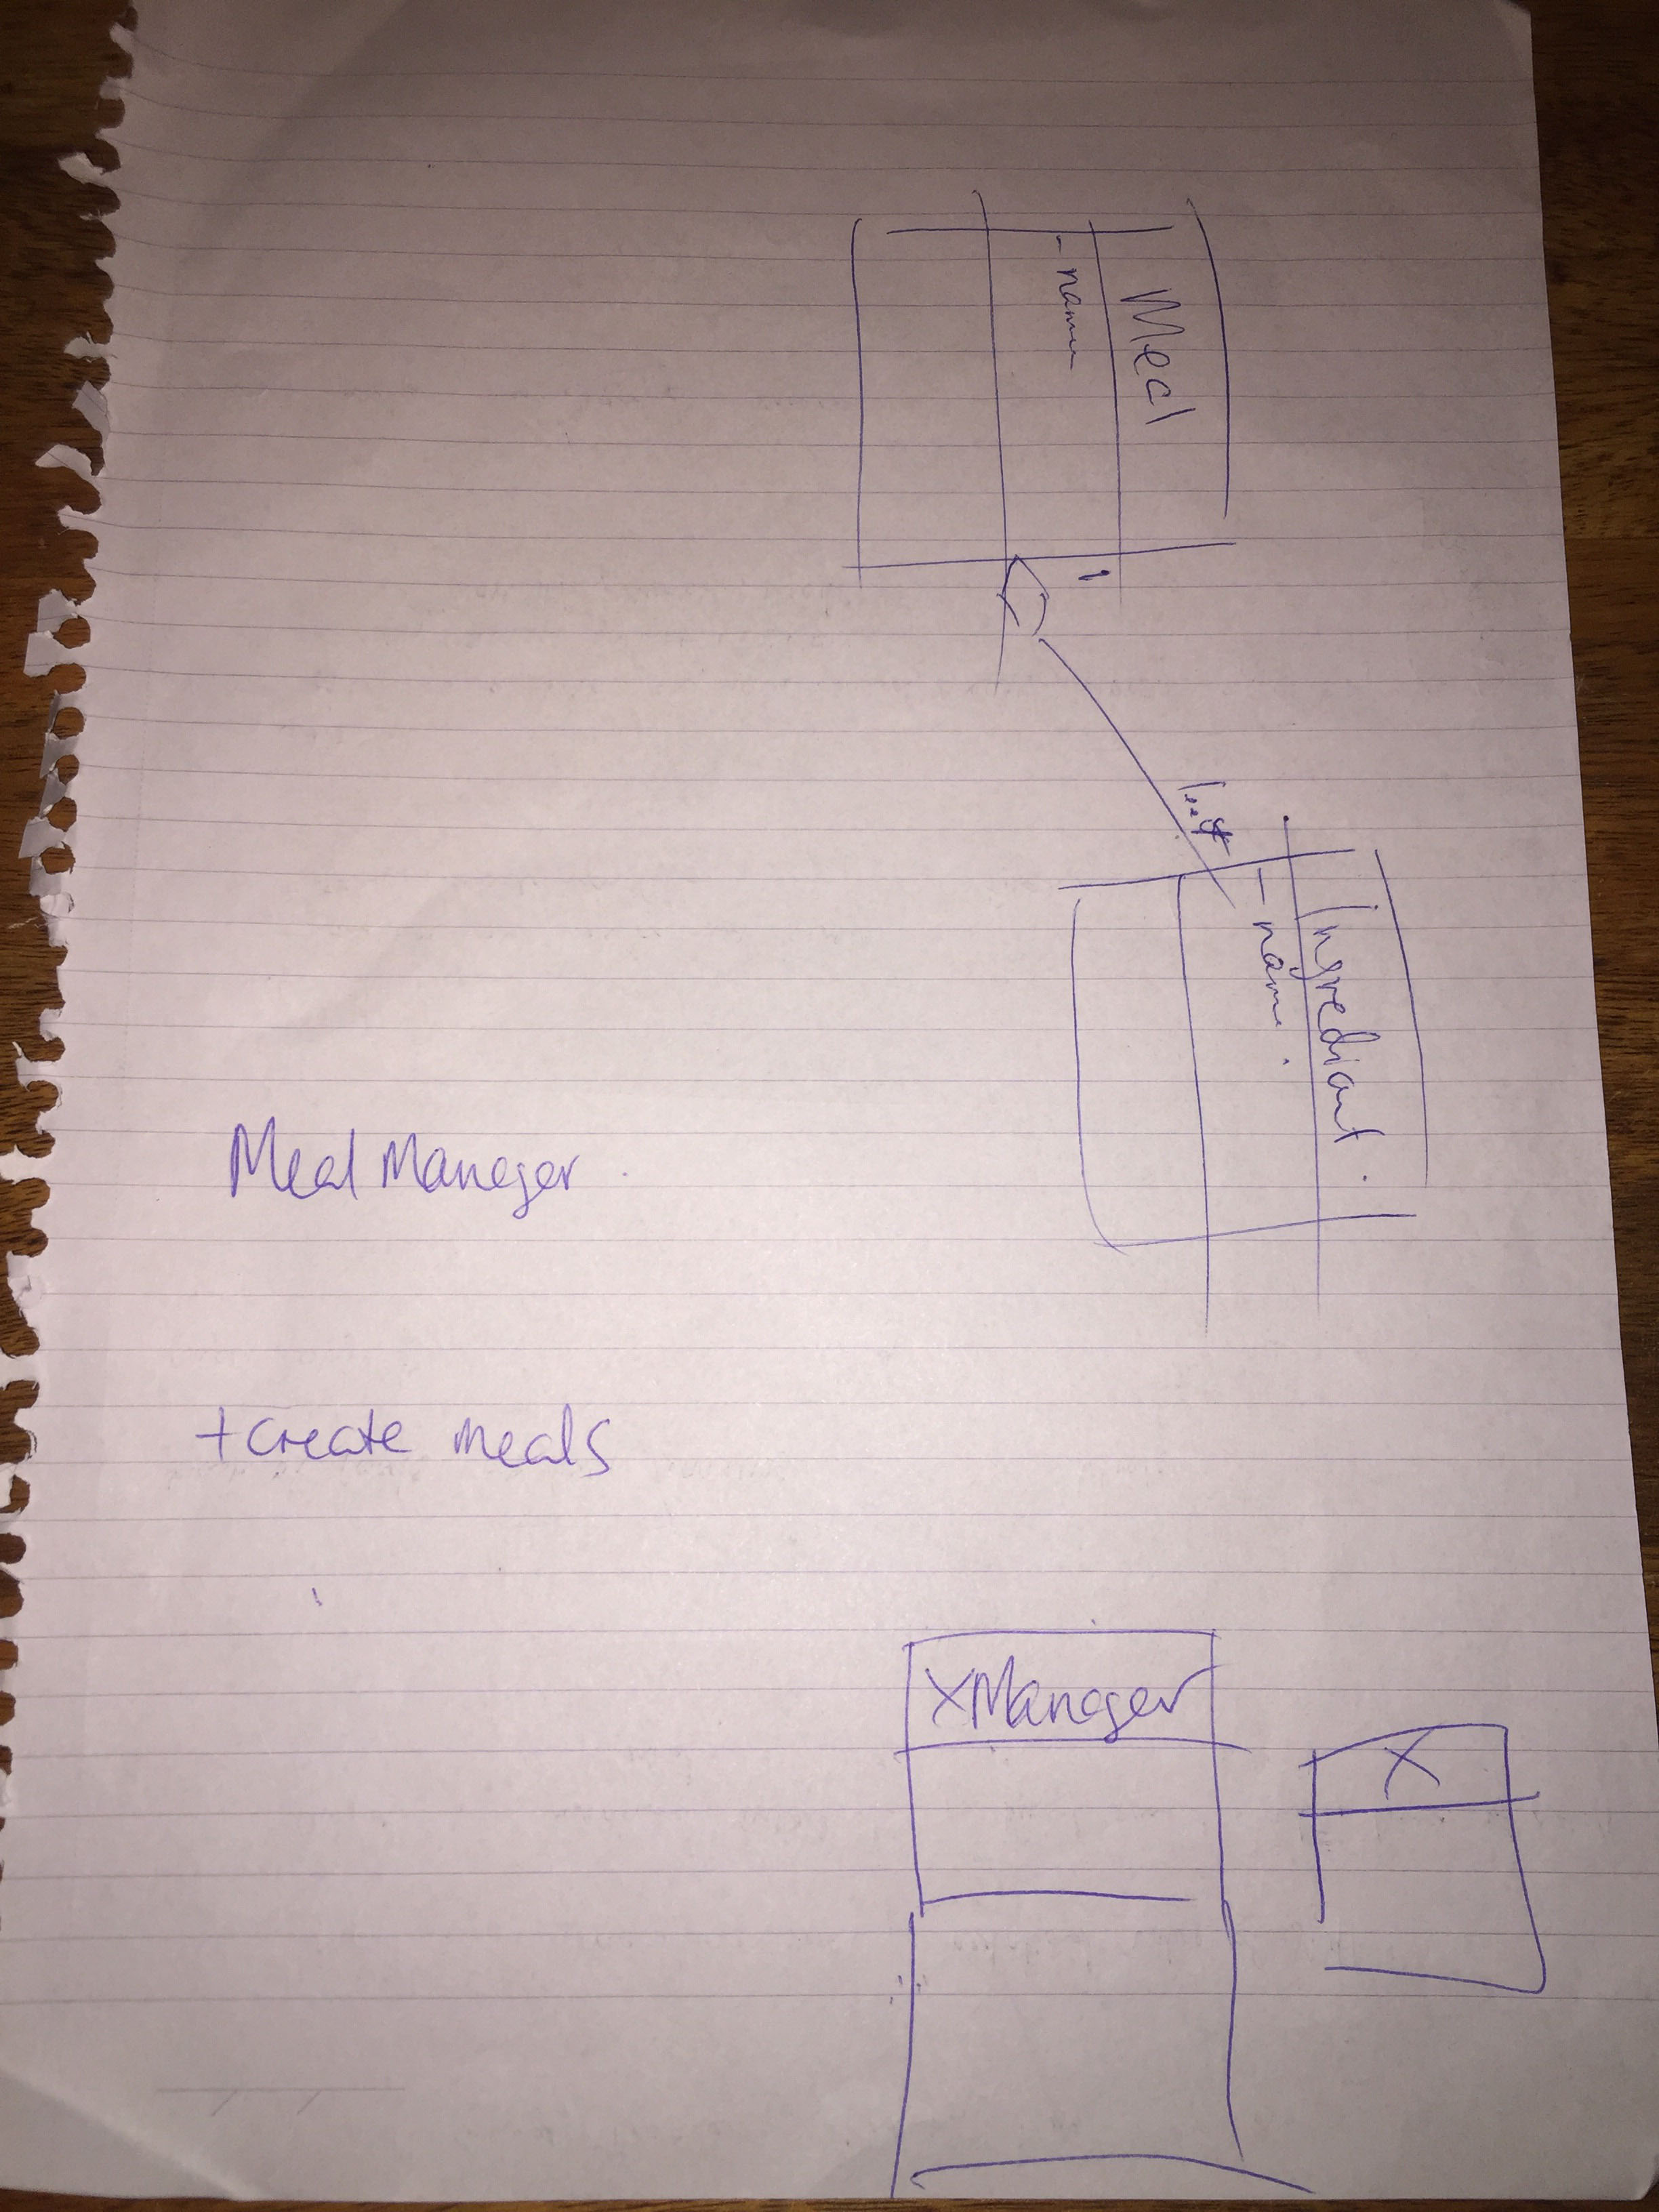 Meal
- name
1
1..*
Ingrediant.
- name.
Meal Manager.
+ create meals
XManager
X